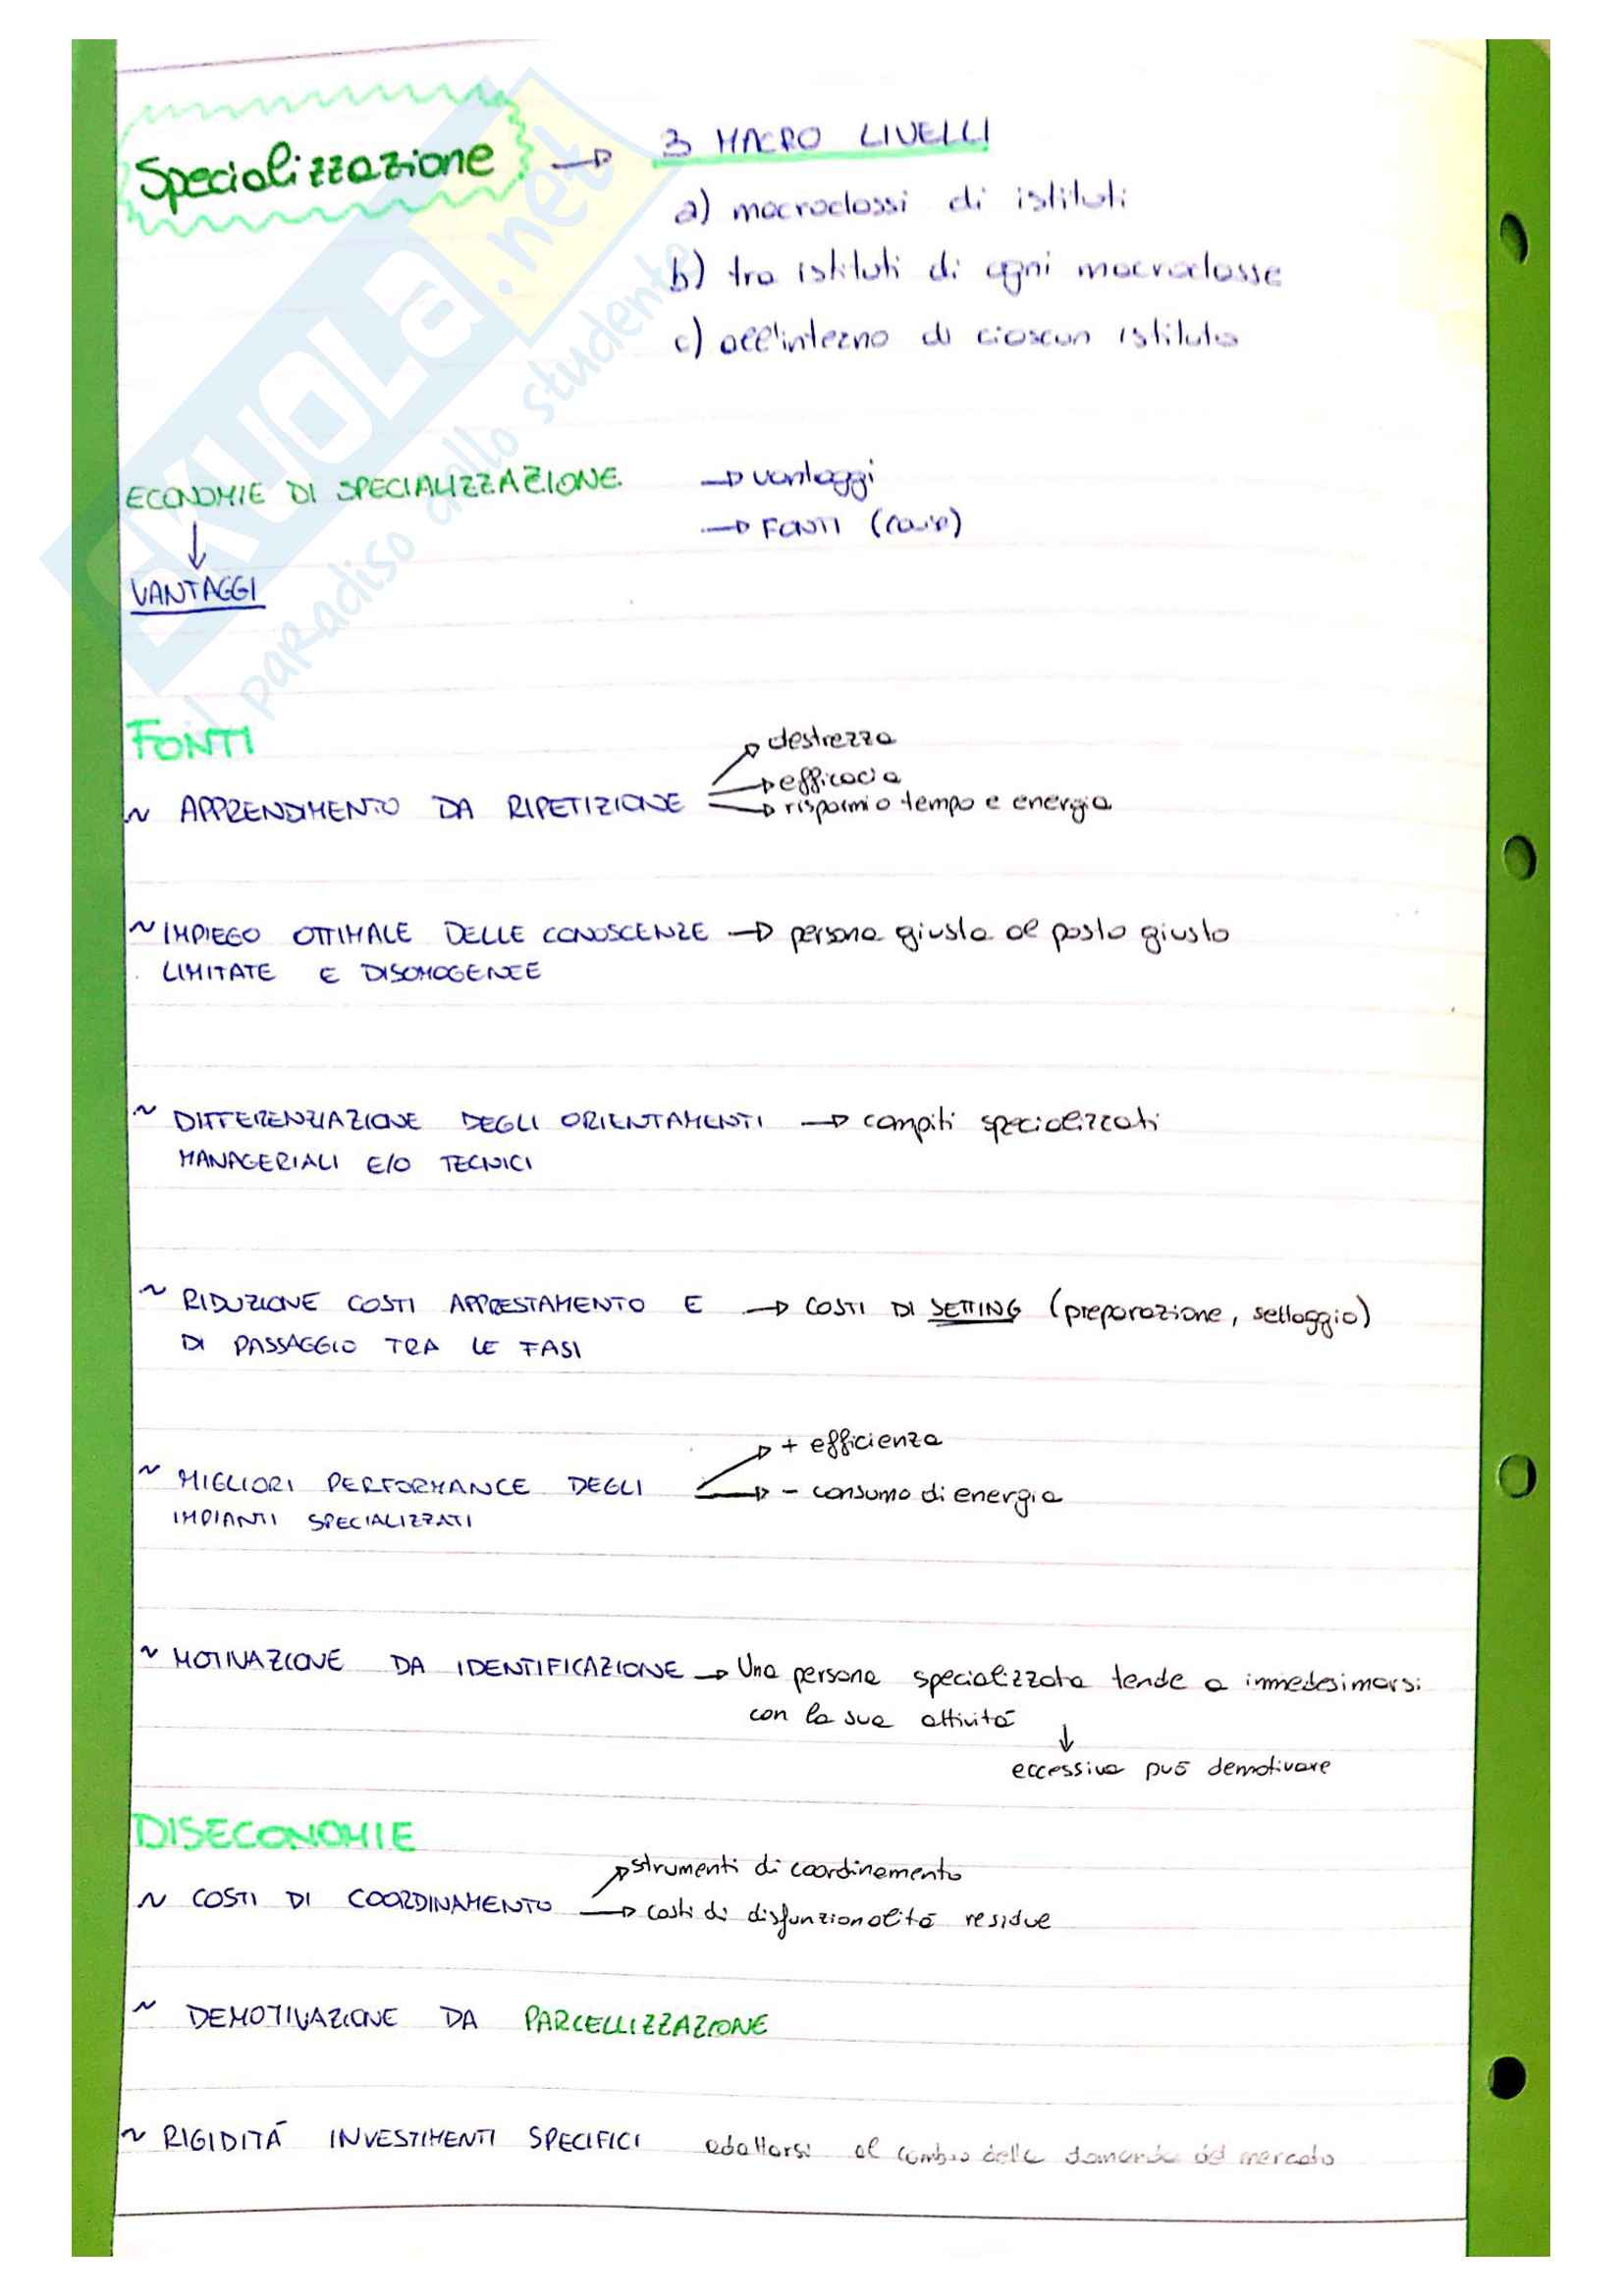 Specializzazione → 3 MACRO LIVELLI
a) macroclassi di istituti
b) tra istituti di ogni macroclasse
c) all'interno di ciascun istituto
ECONOMIE DI SPECIALIZZAZIONE → vantaggi
→ FONTI
↓
VANTAGGI
FONTI
~ APPRENDIMENTO DA RIPETIZIONE → destrezza
→ efficacia
→ risparmio tempo e energia
~ IMPIEGO OTTIMALE DELLE CONOSCENZE → persona giusta al posto giusto
LIMITATE E DISOMOGENEE
~ DIFFERENZIAZIONE DEGLI ORIENTAMENTI → compiti specializzati
MANAGERIALI E/O TECNICI
~ RIDUZIONE COSTI APPRESTAMENTO E → COSTI DI SETTING (preparazione, settaggio)
DI PASSAGGIO TRA LE FASI
~ MIGLIORI PERFORMANCE DEGLI → + efficienza
IMPIANTI SPECIALIZZATI → - consumo di energia
~ MOTIVAZIONE DA IDENTIFICAZIONE → Una persona specializzata tende a immedesimarsi
con la sua attività
↓
eccessiva può demotivare
DISECONOMIE
~ COSTI DI COORDINAMENTO → strumenti di coordinamento
→ costi di disfunzionalità residue
~ DEMOTIVAZIONE DA PARCELLIZZAZIONE
~ RIGIDITÀ INVESTIMENTI SPECIFICI adattarsi al cambio della domanda del mercato
SKUOLA.net
il paradiso dello studente